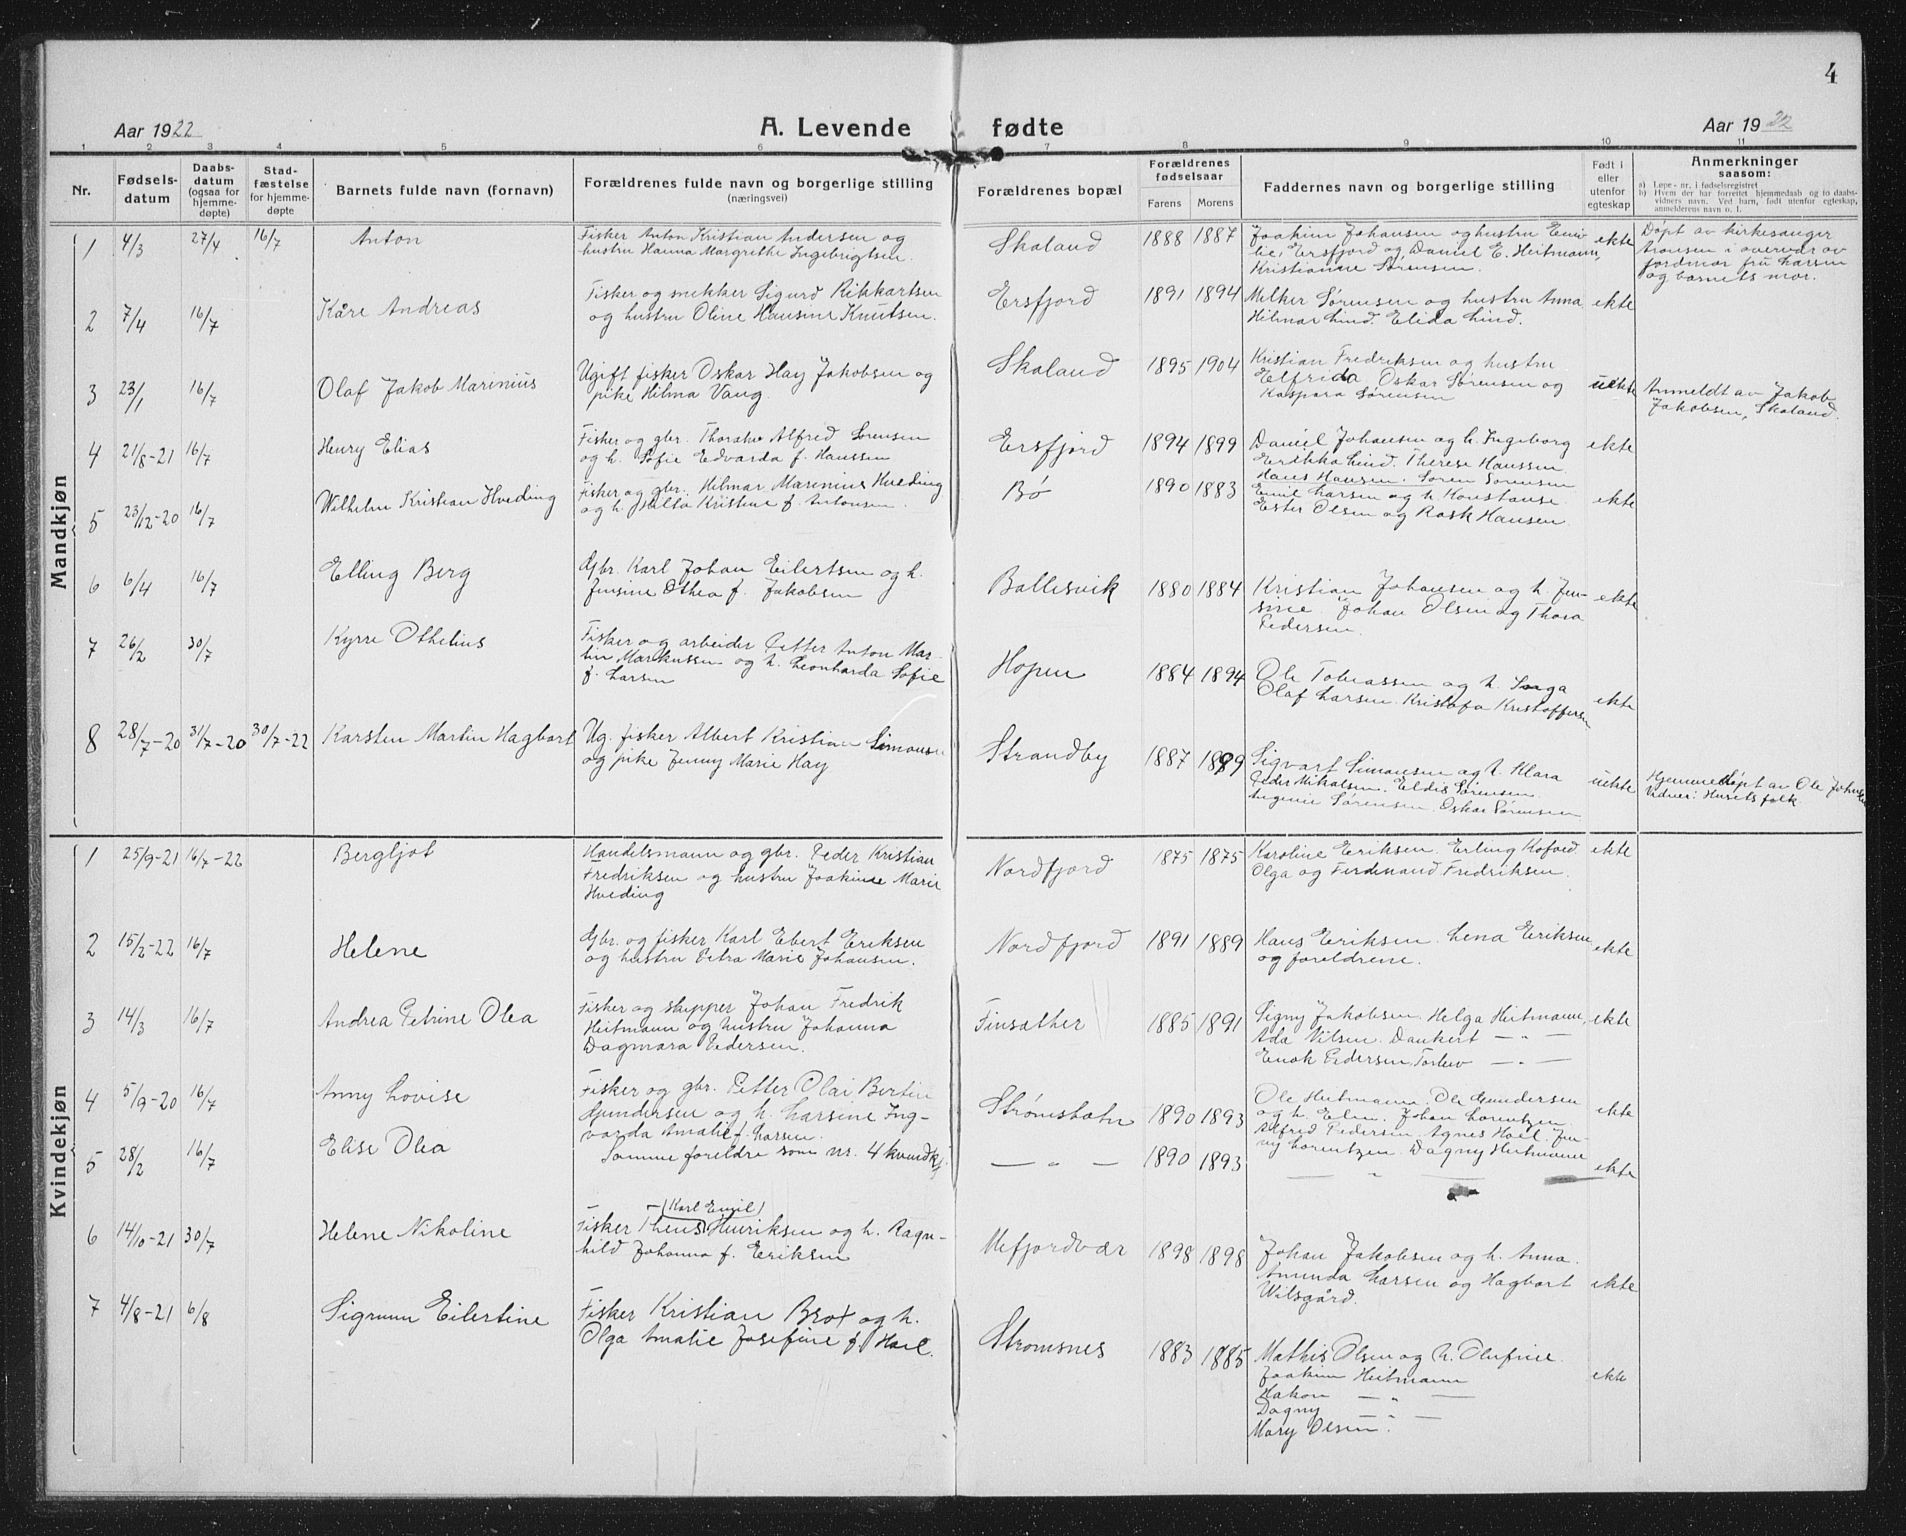 4
Aar 1922 A. Levende fødte Aar 1922
1 2 3 4 5 6 7 8 9 10 11
Nr. Fødsels-datum Daabs-datum (ogsaa for hjemme-døpte) Stad-fæstelse for hjemme-døpte Barnets fulde navn (fornavn) Forældrenes fulde navn og borgerlige stilling (næringsvei) Forældrenes bopæl Forældrenes fødselsaar Farens Morens Faddernes navn og borgerlige stilling Født i eller utenfor egteskap Anmerkninger saasom:
a) Løpe-nr. i fødselsregistret
b) Hvem der har forrettet hjemmedaab og to daabs-
vidners navn. Ved barn, født utenfor egteskap,
anmelderens navn o. l.
Mandkjøn
1 4/3 27/4 16/7 Anton Fisker Anton Kristian Andersen og
hustru Hanna Margrethe Ingebrigtsen.
Skaland 1888 1887 Joakim Johansen og hustru Emi-
lie, Ersfjord og Daniel E. Heitmann,
Kristianne Sørensen.
ekte Døpt av kirkesanger
Aronsen i overvær av
jordmor fru Larsen
og barnets mor.
2 7/4 16/7 Kåre Andreas Fisker og snekker Sigurd Rikkartsen
og hustru Oline Hansine Knutsen.
Ersfjord 1891 1894 Melker Sørensen og hustru Anna
Hilmar Lind. Elida Lind.
ekte
3 23/1 16/7 Olaf Jakob Marinius Ugift fisker Oskar Hay Jakobsen og
pike Hilma Vang.
Skaland 1895 1904 Kristian Fredriksen og hustru
Elfrida Oskar Sørensen og
Kaspara Sørensen
uekte Anmeldt av Jakob
Jakobsen, Skaland.
4 21/8-21 16/7 Henry Elias Fisker og gbr. Alfred Sørensen
og h. Sofie Edvarda f. Hanssen
Ersfjord 1894 1899 Daniel Johansen og h. Ingeborg
Erikka Lind. Therese Hanssen.
Hans Hansen. Søren Sørensen
ekte
5 23/12-20 16/7 Wilhelm Kristian Hveding Fisker og gbr. Hilmar Marinius Hveding
og h. Kristine f. Antonsen.
Bø 1890 1883 Emil Larsen og h Konstanse.
Ester Olsen og Rask Hansen.
ekte
6 6/4 16/7 Elling Berg Gbr. Karl Johan Eilertsen og h.
Jensine Othea f. Jakobsen
Ballesvik 1880 1884 Kristian Johansen og h. Jen-
sine. Johan Olsen og Thora
Pedersen.
ekte
7 26/2 30/7 Kyrre Othelius Fisker og arbeider Petter Anton Mar-
tin Markussen og h. Leonharda Sofie
f. Larsen
Hopen 1884 1894 Ole Tobiassen og h.
Olaf Larsen. Kristofa Kristoffersen
ekte
8 28/7-20 31/7-20 30/7-22 Karsten Martin Hagbart Ug. fisker Albert Kristian Simonsen
og pike Jenny Marie Hay
Strandby 1887 1889 Sigvart Simonsen og h. Klara
Peder Mikalsen. Eldis Sørensen.
Sørensen. Oskar Sørensen
uekte Hjemmedøpt av Ole
Vidner: Husets folk.
Kvindekjøn
1 25/9-21 16/7-22 Bergljot Handelsmann og gbr. Peder Kristian
Fredriksen og hustru Joakine Marie
Hveding
Nordfjord 1875 1875 Karoline Eriksen. Erling Kofoed.
Olga og Ferdinand Fredriksen.
ekte
2 15/2-22 16/7 Helene Gbr. og fisker Karl Ebert Eriksen
og hustru Petra Marie Johansen.
Nordfjord 1891 1889 Hans Eriksen. Lena Eriksen
og foreldrene.
ekte
3 14/3 16/7 Andrea Petrine Olea Fisker og skipper Johan Fredrik
Heitmann og hustru Johanna
Dagmara Pedersen.
Finsæther 1885 1891 Signy Jakobsen. Helga Heitmann,
Ada Nilsen. Dankert — " —
Enok Pedersen. — " —
ekte
4 5/9-20 16/7 Anny Lovise Fisker og gbr. Petter Olai Bertin
Gundersen og h. Larsine Ing-
varda Amalie f. Larsen.
Strømsbotn 1890 1893 Ole Heitmann. Ole Gundersen
og h. Johan Lorentzen.
Alfred Pedersen. Agnes Hoel. Jen-
ny Lorentzen. Dagny Heitmann
ekte
5 28/2 16/7 Elise Olea Samme foreldre som nr. 4 kvindkj.
— " — 1890 1893 — " — ekte
6 14/10-21 30/7 Helene Nikoline (Karl Emil)
Fisker Thens Henriksen og h. Ragn-
hild Johanna f. Eriksen
Mefjordvær 1898 1898 Johan Jakobsen og h. Anna.
Amanda Larsen og Hagbart
Wilsgård.
ekte
7 4/8-21 6/8 Sigrunn Eilertine Fisker Kristian Brox og h.
Olga Amalie Josefine f. Hoel.
Stromsnes 1883 1885 Mathis Olsen og h. Olufine.
Joakim Heitmann
Hakon — " —
Dagny — " —
Mary Olsen.
ekte